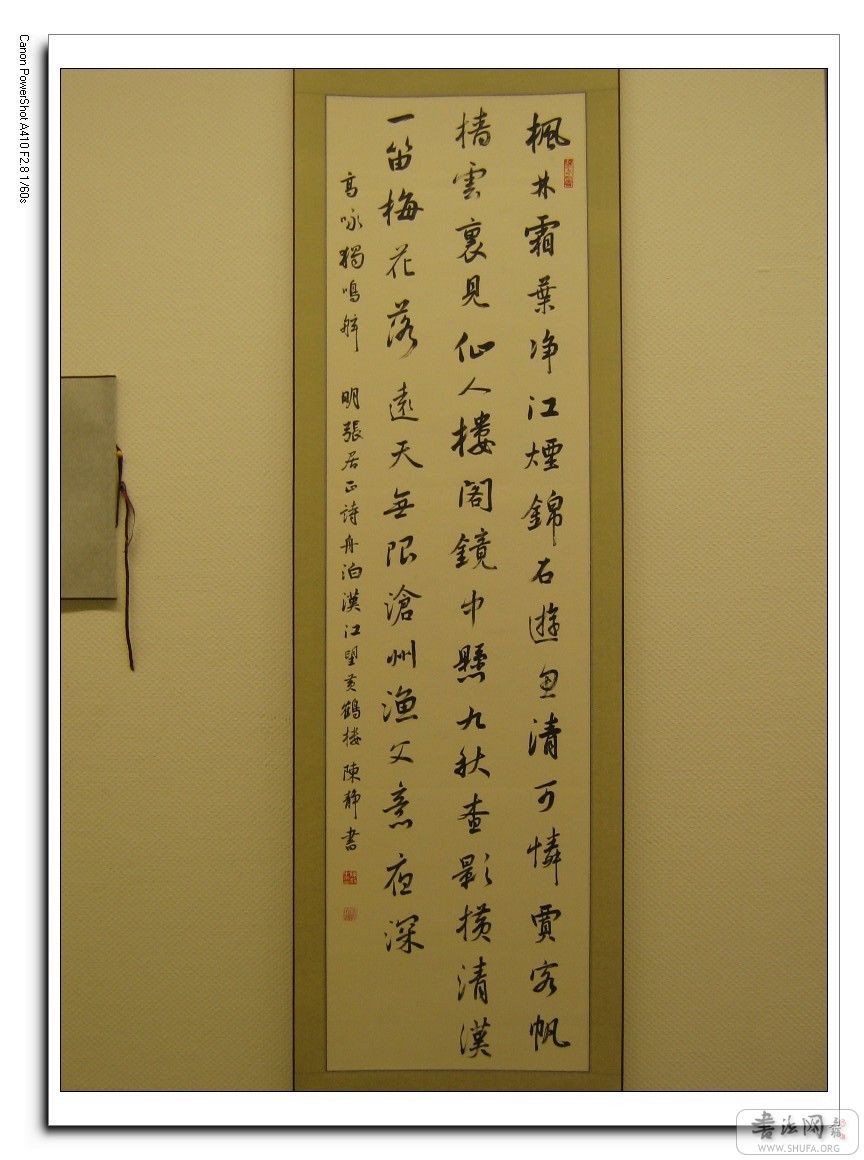 枫林霜葉净江煙錦石遊魚清可憐賈客帆
樯雲裏見仙人樓閣鏡中懸九秋查影横清漢
一笛梅花落遠天無限滄州漁父意夜深
高咏獨鳴舷 明張居正詩舟泊漢江望黄鶴楼 陳静書
Canon PowerShot A410 F2.8 1/60s
书法网
WWW.SHUFA.ORG